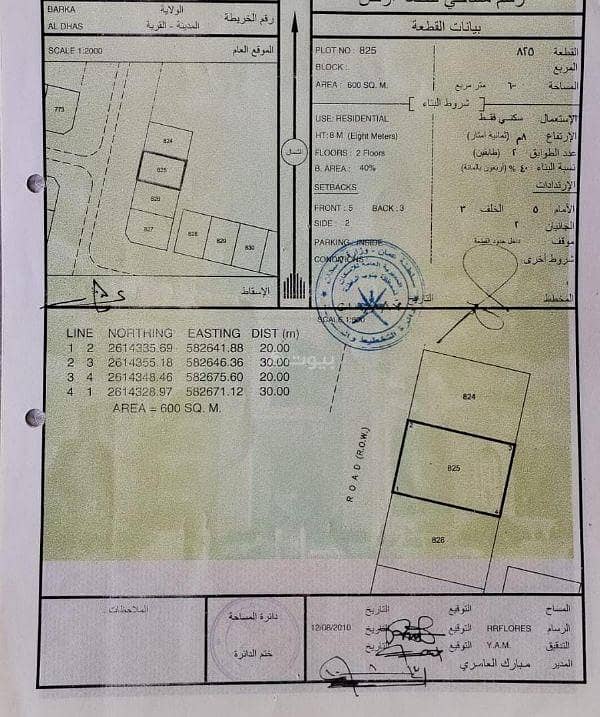 BARKA
الولاية
رقم الخريطة
AL DHAS
المدينة - القرية
SCALE 1:2000
الموقع العام
773
824
825
826
827
828
829
830
الإسقاط
الشمال
بيانات القطعة
PLOT NO : 825
٨٢٥ القطعة
BLOCK :
المربع
AREA : 600 SQ. M.
متر مربع
المساحة
شروط البناء
USE: RESIDENTIAL
الإستعمال سكني فقط
HT: 8 M (Eight Meters)
الإرتفاع ٨م (ثمانية امتار)
FLOORS : 2 Floors
عدد الطوابق ٢ (طابقين)
B. AREA : 40%
نسبة البناء ٤٠ % (اربعون بالمائة)
SETBACKS
الإرتدادات
FRONT : 5 BACK : 3
الأمام ٥ الخلف ٣
SIDE : 2
الجانبان ٢
PARKING : INSIDE
موقف داخل حدود القطعة
CONDITIONS
شروط أخرى
المخطط
التاريخ
SCALE 1:500
LINE NORTHING EASTING DIST (m)
1 2 2614335.69 582641.88 20.00
2 3 2614355.18 582646.36 30.00
3 4 2614348.46 582675.60 20.00
4 1 2614328.97 582671.12 30.00
AREA = 600 SQ. M.
بيوت
ROAD (R.O.W.)
824
2
3
825
1
4
826
الملاحظات
دائرة المساحة
ختم الدائرة
المساح التوقيع التاريخ
الرسام RRFLORES التوقيع التاريخ 12/08/2010
التدقيق Y.A.M. التوقيع التاريخ
المدير مبارك العامري